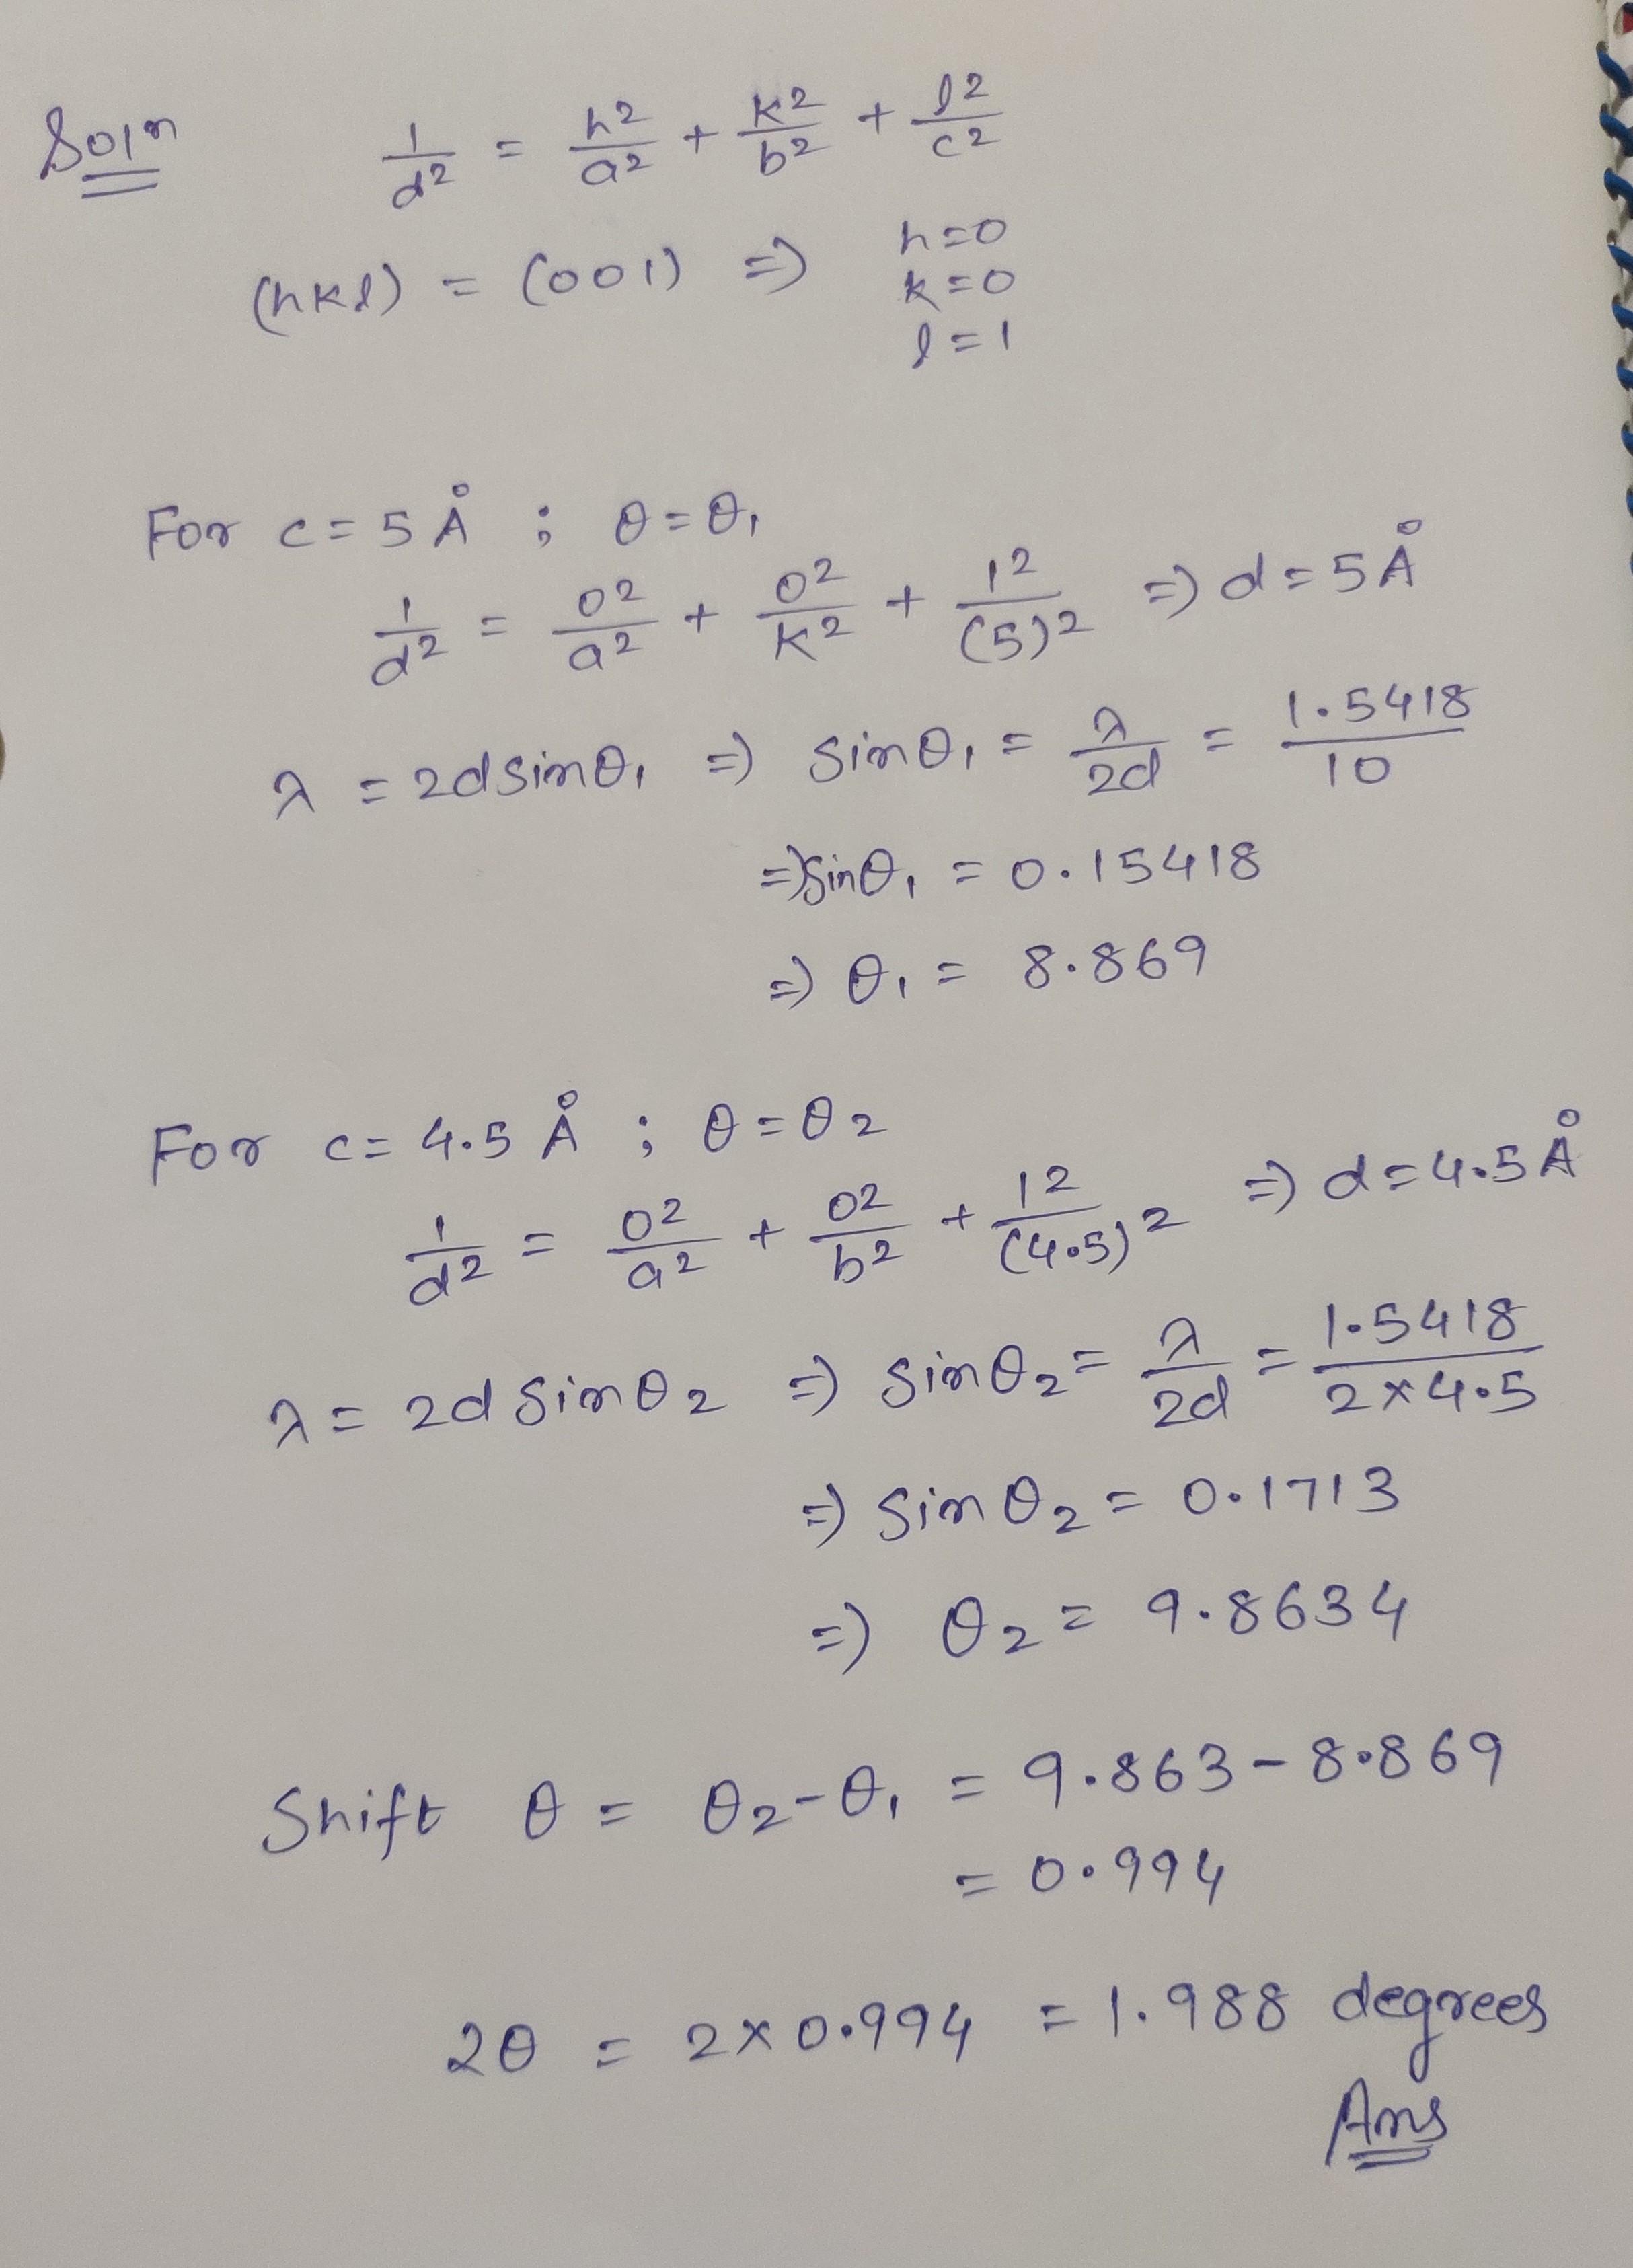 Soln 1/d² = h²/a² + k²/b² + l²/c²
(hkl) = (001) => h=0
k=0
l=1
For c=5Å ; θ=θ₁
1/d² = 0²/a² + 0²/k² + 1²/(5)² => d=5Å
λ = 2dsinθ₁ => sinθ₁ = λ/2d = 1.5418/10
=> sinθ₁ = 0.15418
=> θ₁ = 8.869
For c= 4.5 Å ; θ=θ₂
1/d² = 0²/a² + 0²/b² + 1²/(4.5)² => d=4.5Å
λ = 2d sinθ₂ => sinθ₂ = λ/2d = 1.5418/2×4.5
=> sinθ₂ = 0.1713
=> θ₂ = 9.8634
Shift θ = θ₂-θ₁ = 9.863-8.869
= 0.994
2θ = 2×0.994 = 1.988 degrees
Ans